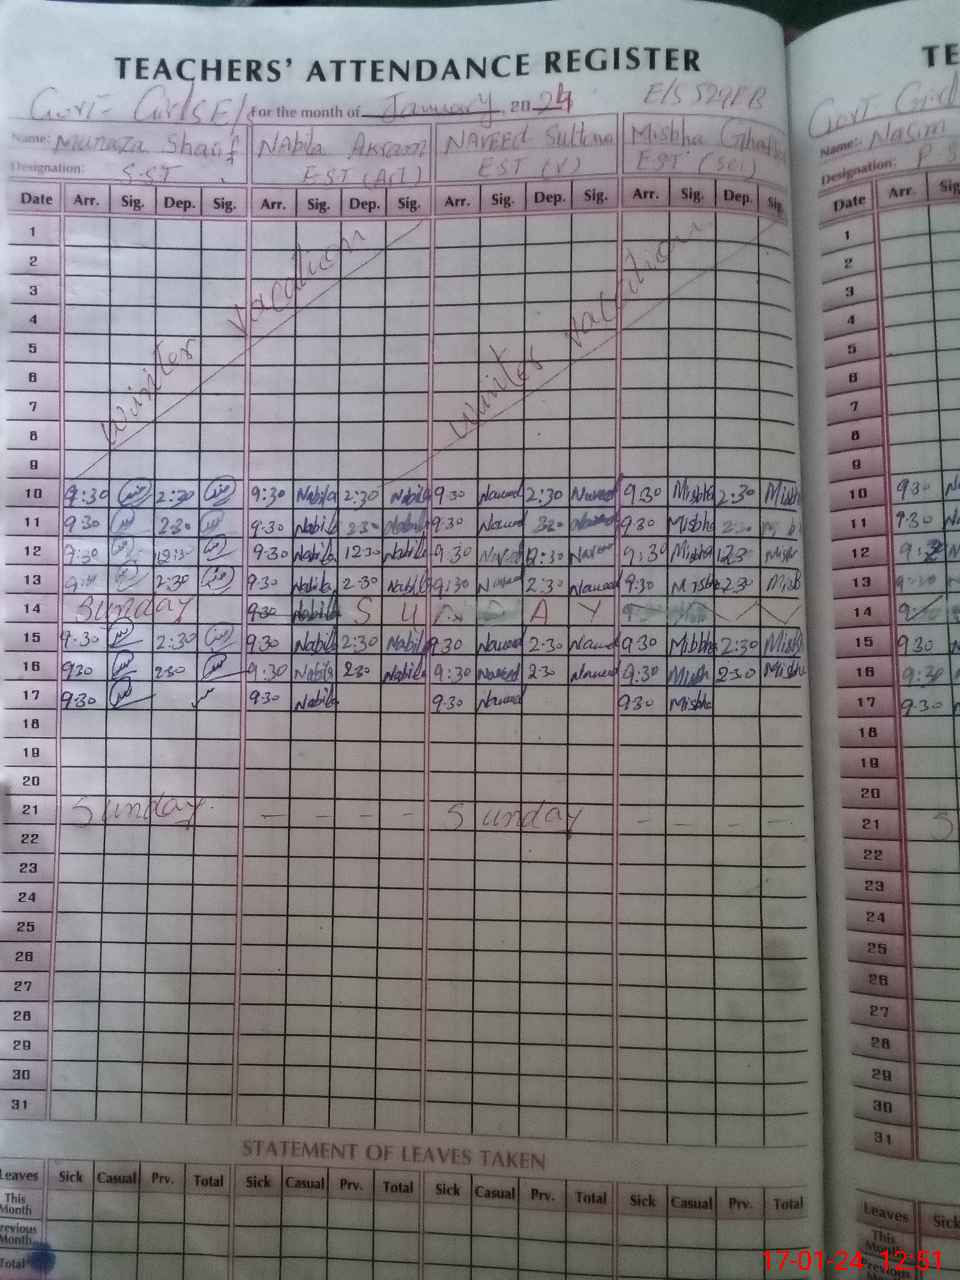 TEACHERS' ATTENDANCE REGISTER TE
Govt- Girls E/ for the month of January, 2024 E/S 529 EB Govt Girl
Name: Munaza Sharif NAbila Akram NAVEED Sultana Misbha Name:- Nasim
Designation: S.ST EST (Art) EST (V) EST (Sci) Designation: P
Date Arr. Sig. Dep. Sig. Arr. Sig. Dep. Sig. Arr. Sig. Dep. Sig. Arr. Sig. Dep. Sig. Date Arr. Sig
1 1
2 2
3 3
4 4
5 5
6 6
7 7
8 8
9 9
Winter vacation Winter vacation
10 9:30 2:30 9:30 Nabila 2:30 Nabila 9 30 Naveed 2:30 Naveed 9:30 Misbha 2:30 Misbh 10 9 30
11 9 30 2:30 9:30 Nabila 2:30 Nabila 9:30 Naveed 9:30 Misbha 2:30 11 9.30
12 9:30 12:30 9:30 Nabila 12:30 Nabila 9:30 Naveed 12:30 Naveed 9:30 Misbha 12:30 Misbh 12
13 2:30 9:30 Nabila 2:30 Nabila 9:30 2:30 Naveed 9:30 Misbha 2:30 Misb 13
14 Sunday 9:30 Nabila S U N D A Y 14
15 9:30 2:30 9:30 Nabila 2:30 Nabila 9:30 Naveed 2:30 Naveed 9:30 Misbha 2:30 Misbh 15 9 30
16 9:30 2:30 9:30 Nabila 2:30 Nabila 9:30 Naveed 2:30 Naveed 9:30 Misbh 2:30 Misbha 16 9:30
17 9:30 9:30 Nabila 9:30 Naveed 9:30 Misbha 17 9:30
18 18
19 19
20 20
21 Sunday - - - - Sunday - - - 21 S
22 22
23 23
24 24
25 25
26 26
27 27
28 28
29 29
30 30
31 31
STATEMENT OF LEAVES TAKEN
Leaves Sick Casual Prv. Total Sick Casual Prv. Total Sick Casual Prv. Total Sick Casual Prv. Total Leaves Sick
This Month This Month
Previous Month Previous
Total
17-01-24 12:51